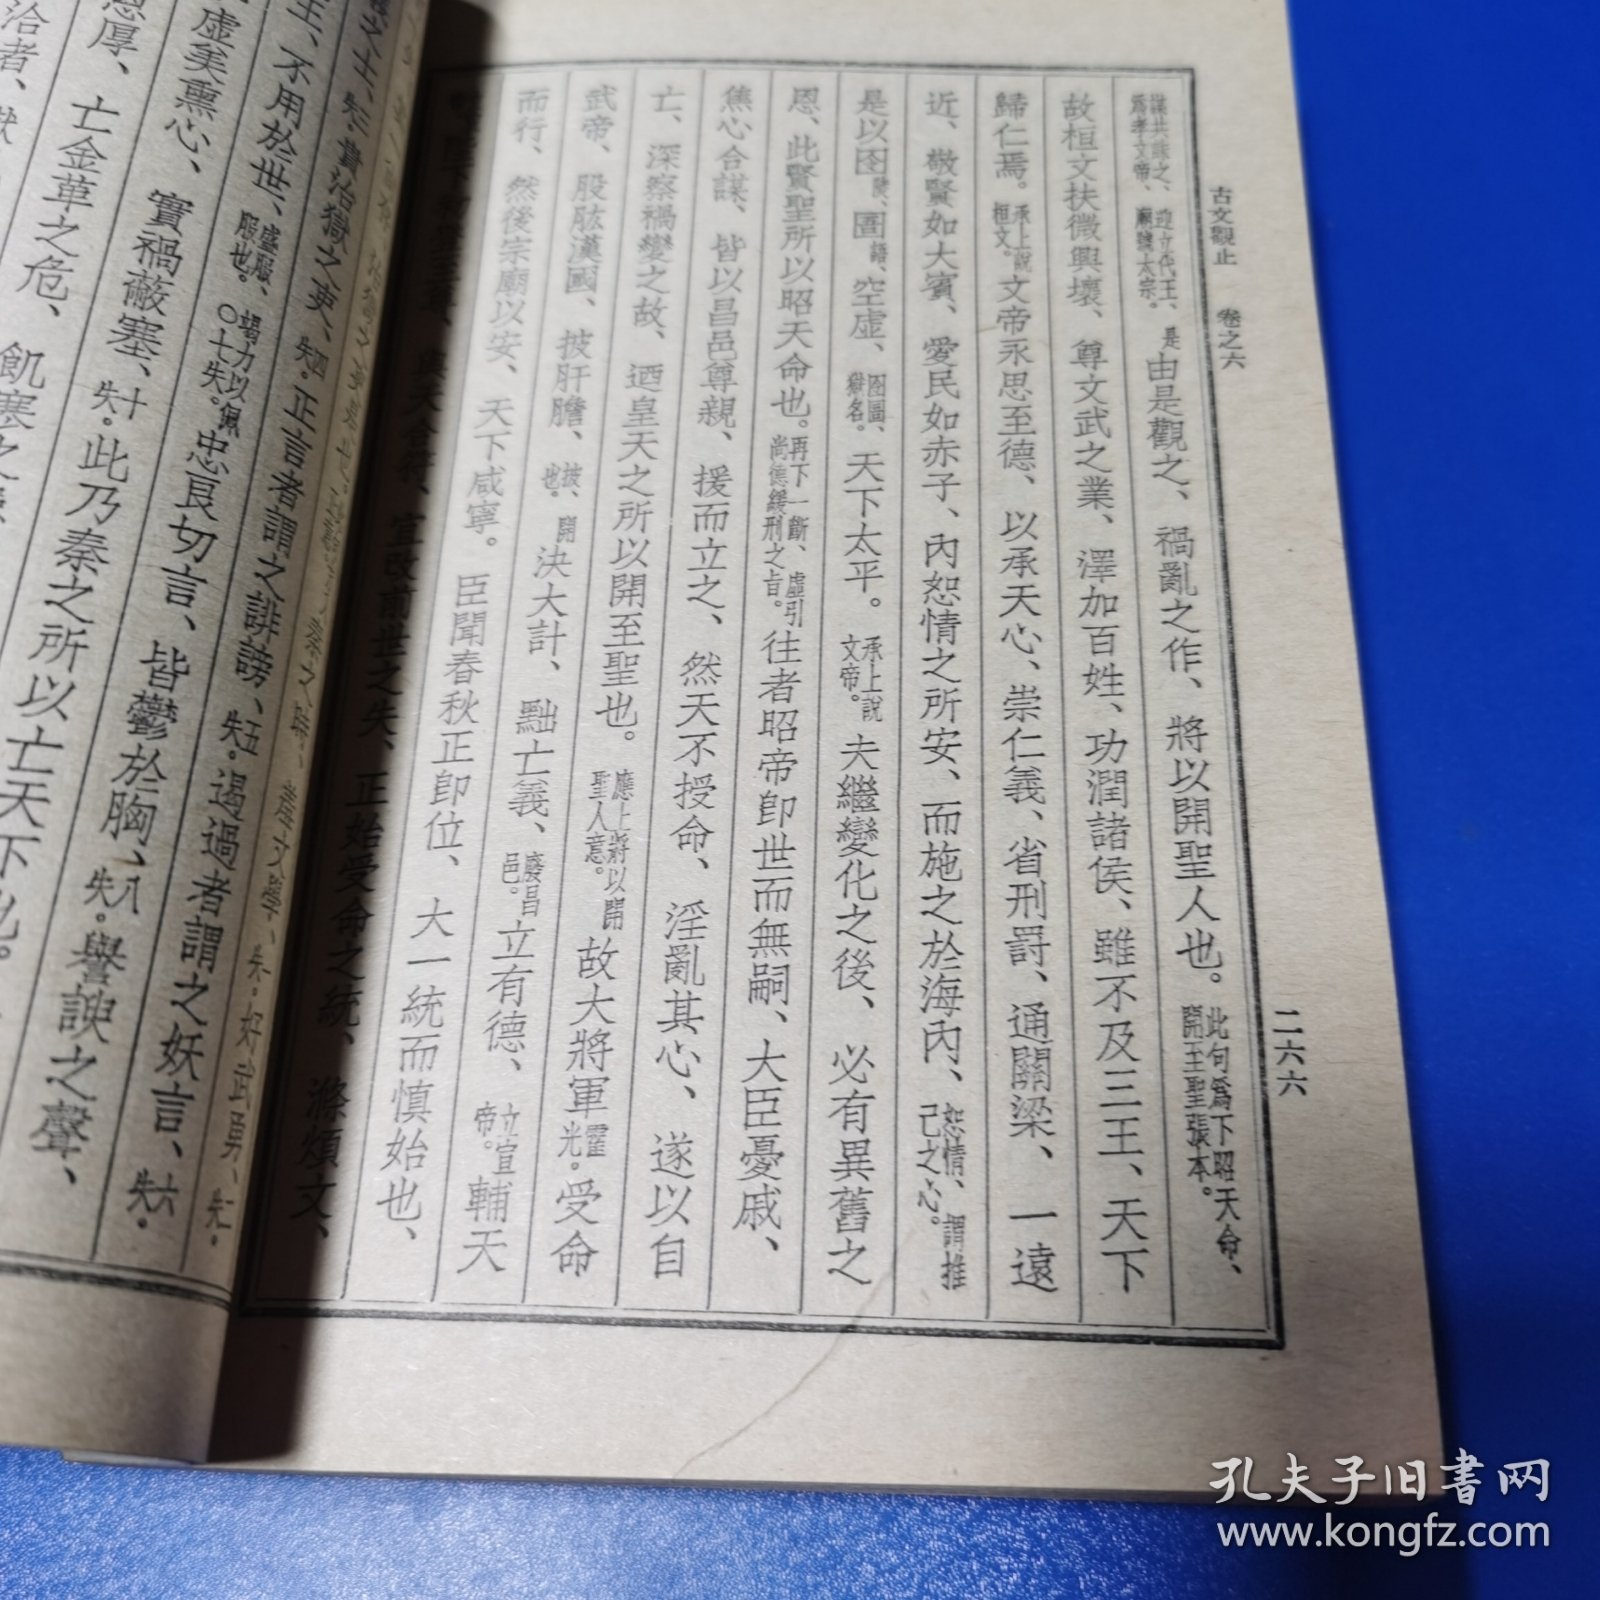 古文觀止 卷之六 二六六
謀共誅之、迎立代王、是爲孝文帝、廟號太宗。由是觀之、禍亂之作、將以開聖人也。此句爲下昭天命、開至聖張本。
故桓文扶微興壞、尊文武之業、澤加百姓、功潤諸侯、雖不及三王、天下
歸仁焉。承上說桓文。文帝永思至德、以承天心、崇仁義、省刑罰、通關梁、一遠
近、敬賢如大賓、愛民如赤子、內恕情之所安、而施之於海內、恕情、謂推己之心。
是以囹陵、圄語、空虛、囹圄、獄名。天下太平。承上說文帝。夫繼變化之後、必有異舊之
恩、此賢聖所以昭天命也。再下一斷、虛引尚德緩刑之旨。往者昭帝卽世而無嗣、大臣憂戚、
焦心合謀、皆以昌邑尊親、援而立之、然天不授命、淫亂其心、遂以自
亡、深察禍變之故、迺皇天之所以開至聖也。應上將以開聖人意。故大將軍霍光。受命
武帝、股肱漢國、披肝膽、披、開也。決大計、黜亡義、廢昌邑。立有德、立宣帝。輔天
而行、然後宗廟以安、天下咸寧。臣聞春秋正卽位、大一統而慎始也、
宜改前世之失、正始受命之統、滌煩文、
貴治獄之吏、四失。正言者謂之誹謗、五失。遏過者謂之妖言、六失。
王、不用於世、盛服、竭力以佩服也。〇七失。忠良切言、皆鬱於胸、八失。譽諛之聲、
虛美熏心、實禍蔽塞、十失。此乃秦之所以亡天下也。
恩厚、亡金革之危、飢寒之
洽者、
孔夫子旧书网
www.kongfz.com